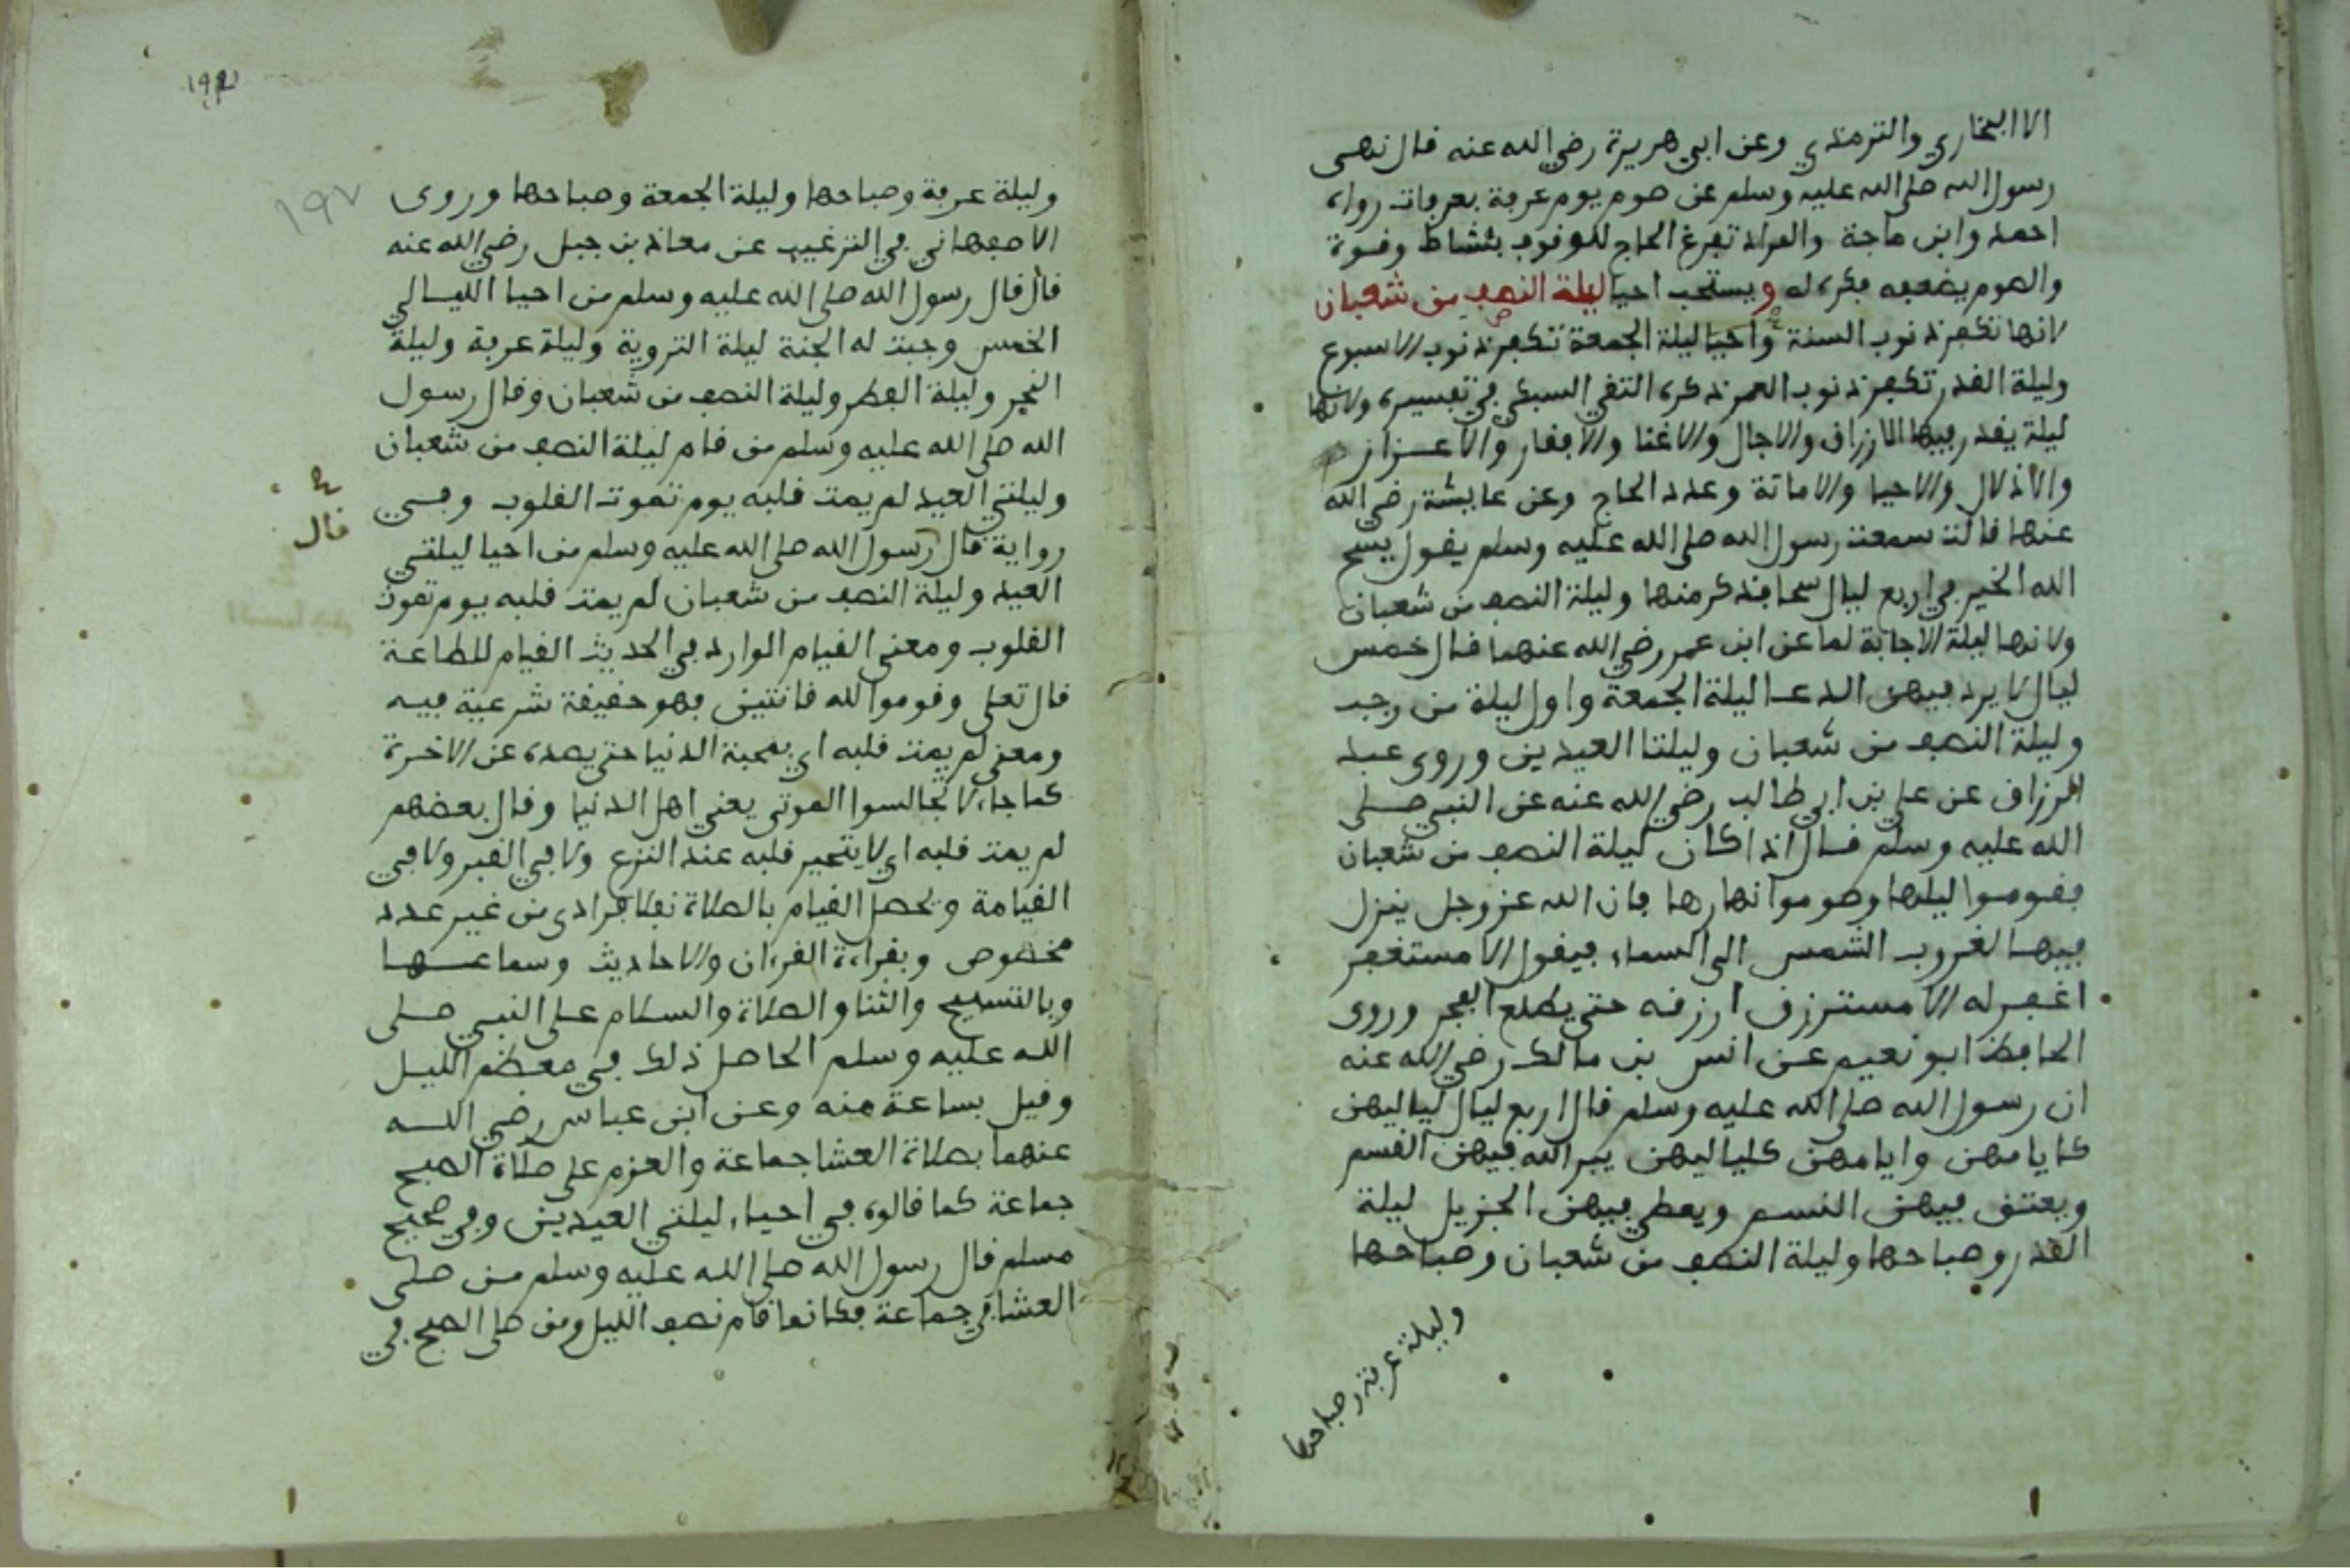 الا البخاري والترمذي وعن ابي هريرة رضي الله عنه قال نهى
رسول الله صلى الله عليه وسلم عن صوم يوم عرفة بعرفات رواه
احمد وابن ماجة والمراد تفرغ الحاج للوقوف بنشاط وقوة
والصوم يضعفه فكره له ويستحب احيا ليلة النصف من شعبان
لانها تكفر ذنوب السنة واحيا ليلة الجمعة تكفر ذنوب الاسبوع
وليلة القدر تكفر ذنوب العمر ذكره التقي السبكي في تفسيره ولانها
ليلة يقدر فيها الارزاق والاجال والاغنا والافقار والاعزاز
والاذلال والاحيا والاماتة وعدد الحاج وعن عايشة رضي الله
عنها قالت سمعت رسول الله صلى الله عليه وسلم يقول يسح
الله الخير في اربع ليال سحا فذكر منها وليلة النصف من شعبان
ولانها ليلة الاجابة لما عن ابن عمر رضي الله عنهما قال خمس
ليال لا يرد فيهن الدعا ليلة الجمعة واول ليلة من رجب
وليلة النصف من شعبان وليلتا العيدين وروى عبد
الرزاق عن علي بن ابي طالب رضي الله عنه عن النبي صلى
الله عليه وسلم قال اذا كان ليلة النصف من شعبان
فقوموا ليلها وصوموا نهارها فان الله عز وجل ينزل
فيها لغروب الشمس الى السماء فيقول الا مستغفر
اغفر له الا مسترزق ارزقه حتى يطلع الفجر وروى
الحافظ ابو نعيم عن انس بن مالك رضي الله عنه
ان رسول الله صلى الله عليه وسلم قال اربع ليال لياليهن
كايامهن وايامهن كلياليهن يبر الله فيهن القسم
ويعتق فيهن النسم ويعطي فيهن الجزيل ليلة
القدر وصباحها وليلة النصف من شعبان وصباحها
وليلة عرفة وصباحها
١٩٧
وليلة عرفة وصباحها وليلة الجمعة وصباحها وروى
الاصبهاني في الترغيب عن معاذ بن جبل رضي الله عنه
قال قال رسول الله صلى الله عليه وسلم من احيا الليالي
الخمس وجبت له الجنة ليلة التروية وليلة عرفة وليلة
النحر وليلة الفطر وليلة النصف من شعبان وقال رسول
الله صلى الله عليه وسلم من قام ليلة النصف من شعبان
وليلتي العيد لم يمت قلبه يوم تموت القلوب وفي
قال
رواية قال رسول الله صلى الله عليه وسلم من احيا ليلتي
العيد وليلة النصف من شعبان لم يمت قلبه يوم تموت
القلوب ومعنى القيام الوارد في الحديث القيام للطاعة
قال تعلى وقوموا لله قانتين فهو حقيقة شرعية فيه
ومعنى لم يمت قلبه اي بمحبة الدنيا حتى يصده عن الاخرة
كما جاء لا تجالسوا الموتى يعني اهل الدنيا وقال بعضهم
لم يمت قلبه اي لا يتحير قلبه عند النزع ولا في القبر ولا في
القيامة ويحصل القيام بالصلاة نفلا فرادى من غير عدد
مخصوص وبقراءة القرءان والاحاديث وسماعها
وبالتسبيح والثنا والصلاة والسلام على النبي صلى
الله عليه وسلم الحاصل ذلك في معظم الليل
وقيل بساعة منه وعن ابن عباس رضي الله
عنهما بصلاة العشا جماعة والعزم على صلاة الصبح
جماعة كما قالوه في احياء ليلتي العيدين وفي صحيح
مسلم قال رسول الله صلى الله عليه وسلم من صلى
العشا في جماعة فكانما قام نصف الليل ومن صلى الصبح في